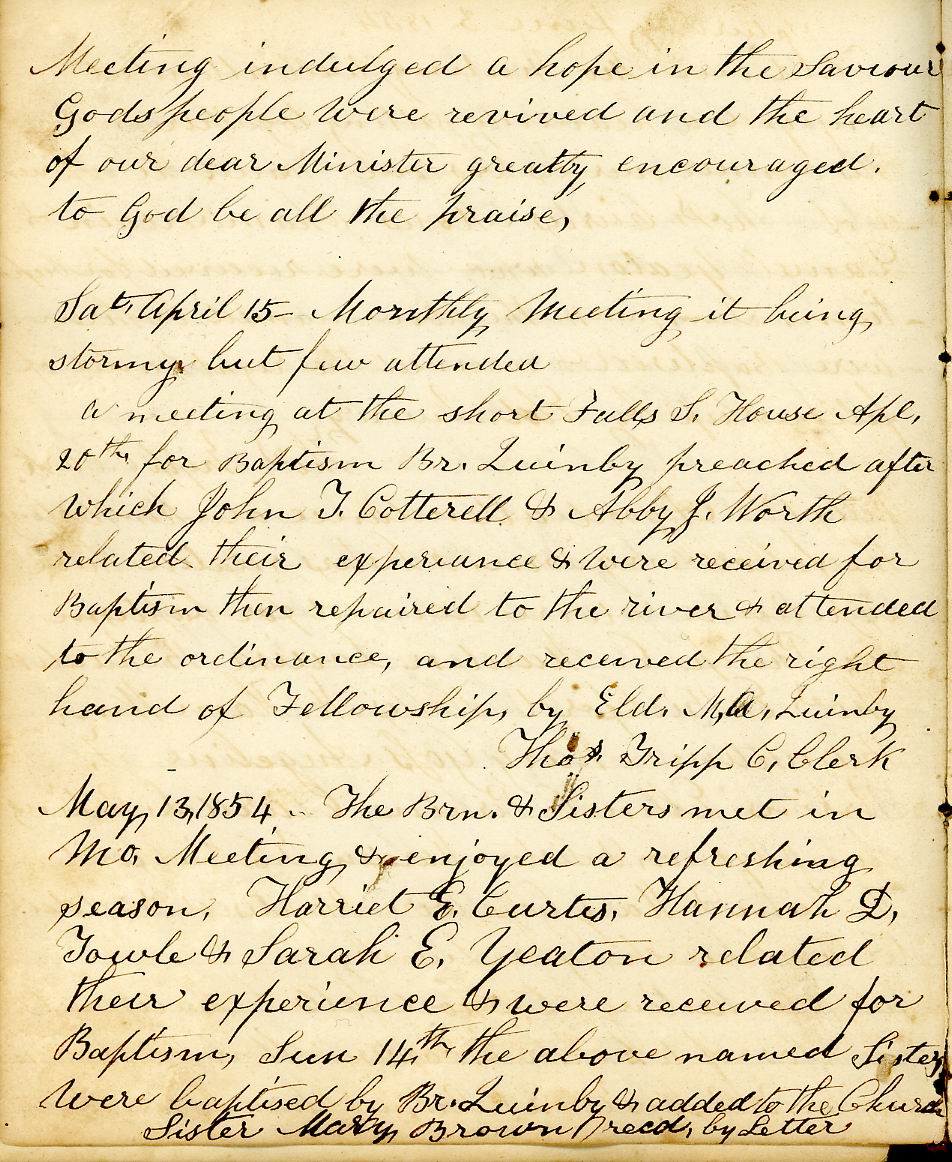 Meeting indulged a hope in the Saviour
Gods people were revived and the heart
of our dear Minister greatly encouraged.
to God be all the praise,
Sat. April 15 - Monthly Meeting it being
stormy but few attended
a meeting at the short Falls S. House Apl.
20th for Baptism Br. Quinby preached after
which John T. Cotterell & Abby J. Worth
related their experiance & were received for
Baptism then repaired to the river & attended
to the ordinance, and received the right
hand of Fellowship, by Eld. M. A. Quinby
Thos. Tripp C. Clerk
May 13, 1854 - The Brn. & Sisters met in
Mo. Meeting & enjoyed a refreshing
season, Harriet E. Curtis, Hannah D.
Towle & Sarah E. Yeaton related
their experience & were received for
Baptism, Sun 14th the above named Sisters
were baptised by Br. Quinby & added to the Church
Sister Mary Brown recd, by Letter